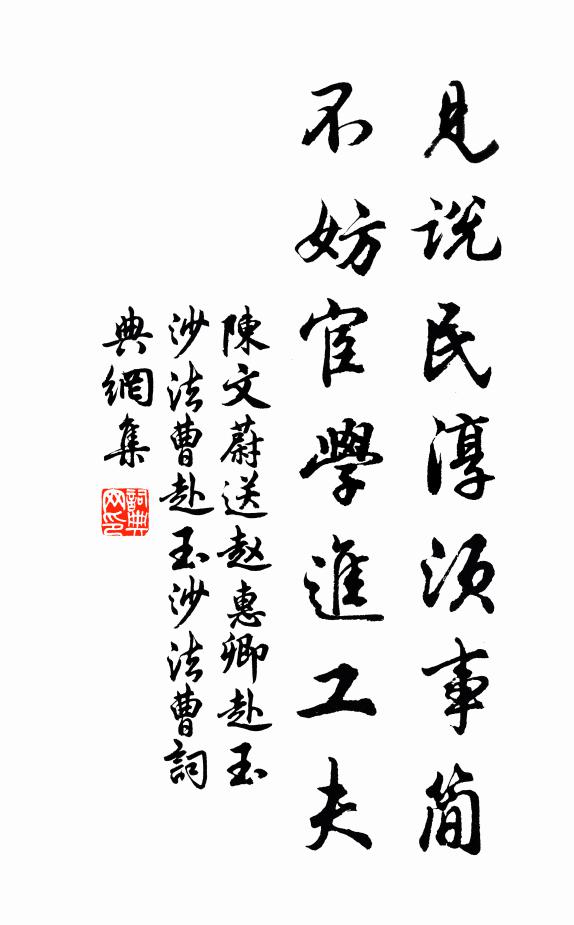 見説民淳須事簡
不妨官學進工夫
陳文蔚送趙惠卿赴玉
沙法曹赴玉沙法曹詞
典網集
詞典網印